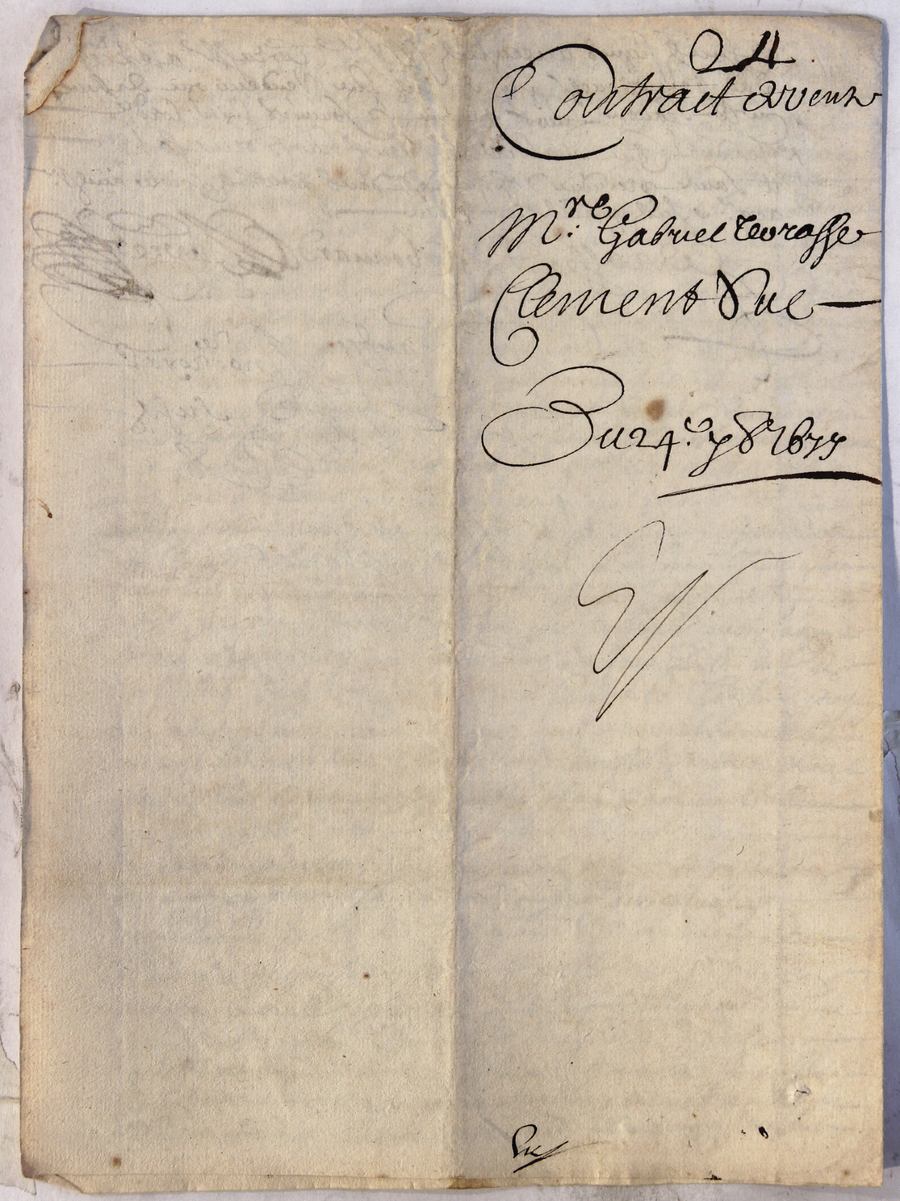 24
Contract de vente
M.re Gabriel terrasse
Clement Vue
Du 24.e 7br 1677